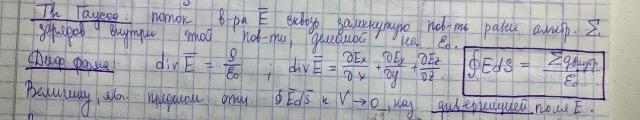 Th Гаусса: поток в-ра E̅ сквозь замкнутую пов-ть равен алгебр. Σ
зарядов внутри этой пов-ти, делёной на ε₀.
Диф форма: div E̅ = ρ/ε₀ ; div E̅ = ∂Ex/∂x + ∂Ey/∂y + ∂Ez/∂z. ∮E̅dS̅ = Σqвнутр/ε₀
Величину, явл. пределом отн. ∮E̅dS̅ к V→0, наз дивергенцией поля E.